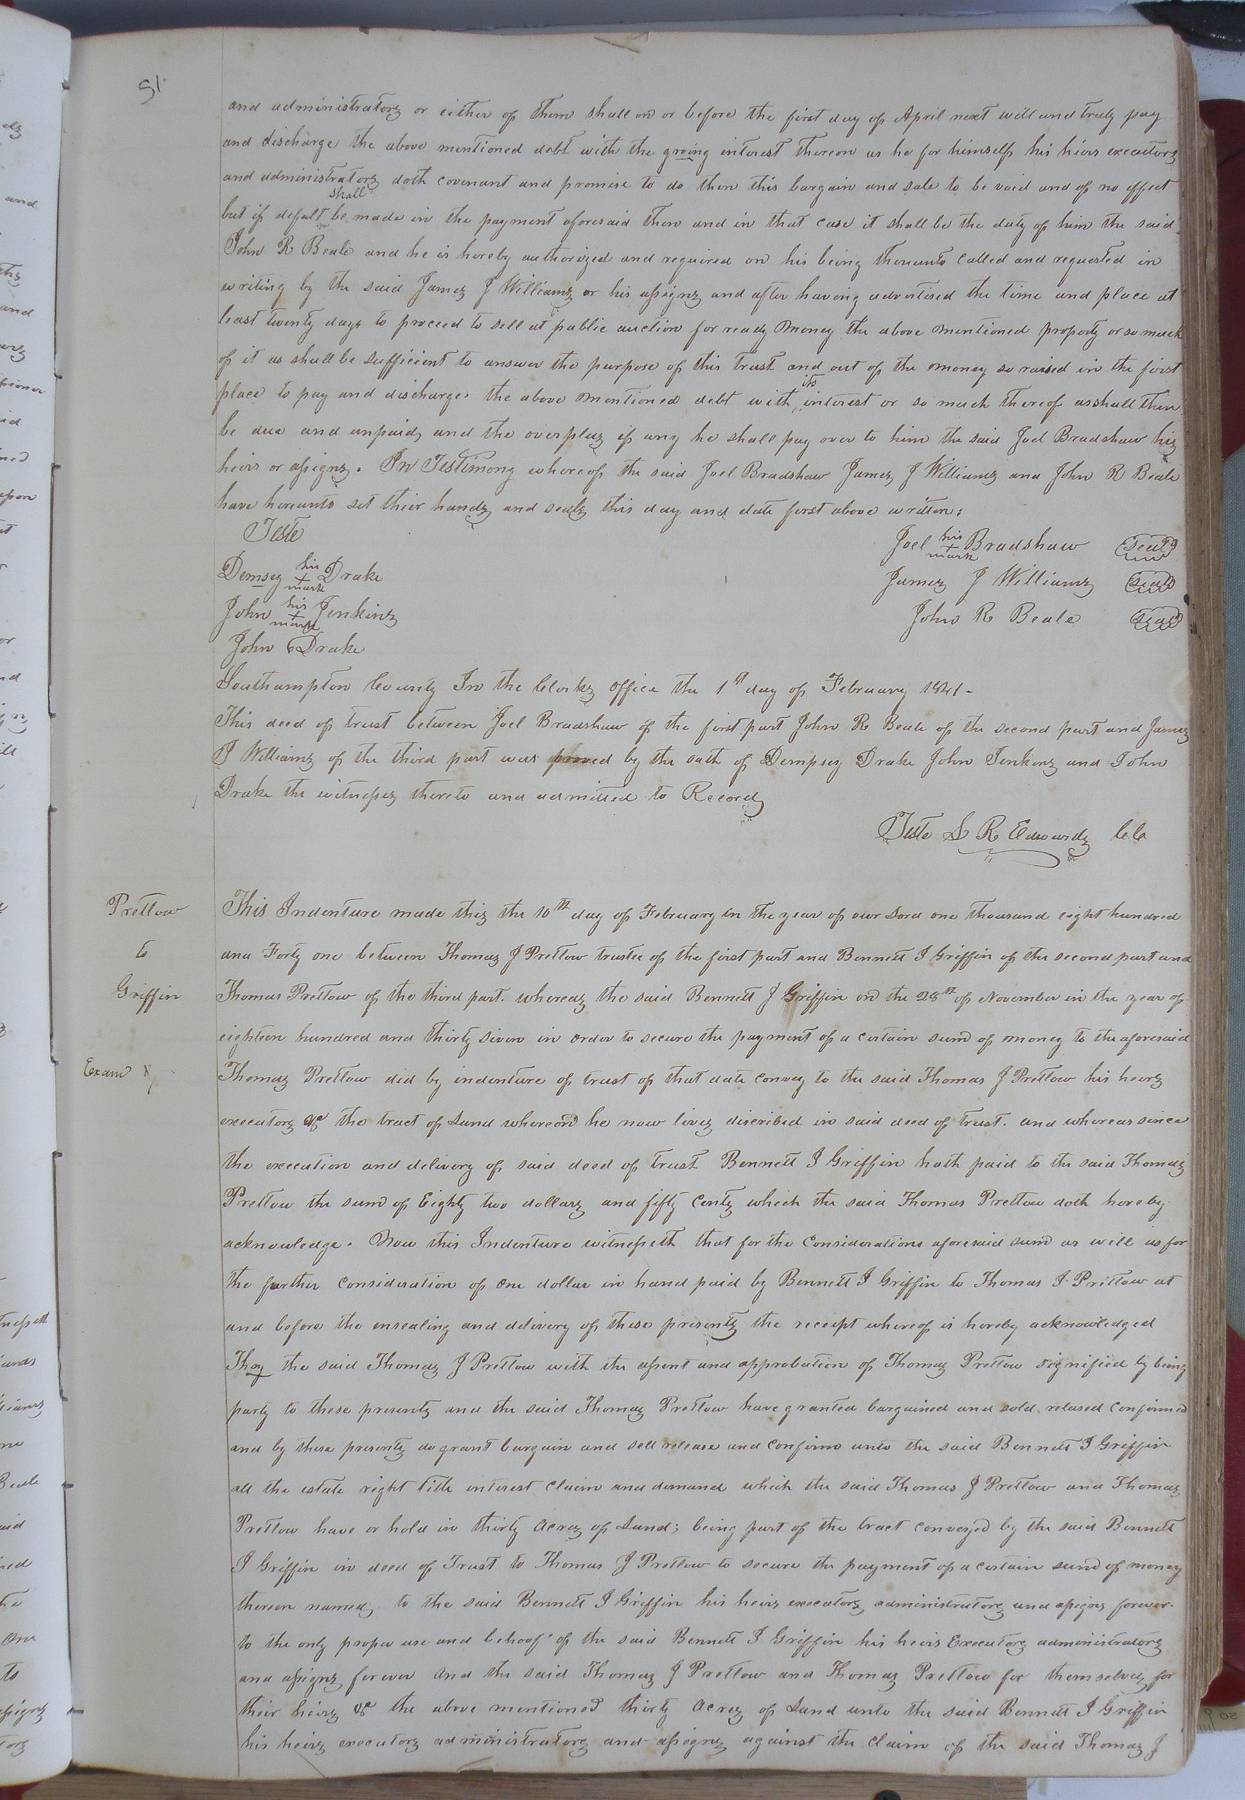 51
and administrators or either of them shall on or before the first day of April next will and truly pay
and discharge the above mentioned debt with the growing interest thereon as he for himself his heirs executors
and administrators doth covenant and promise to do then this bargain and sale to be void and of no effect
but if defalt shall be made in the payment aforesaid then and in that case it shall be the duty of him the said
John R Beale and he is hereby authorized and required on his being thereunto called and requested in
writing by the said James J Williams or his assigns and after having advertised the time and place at
least twenty days to proceed to sell at public auction for ready money the above mentioned property or so much
of it as shall be sufficient to answer the purpose of this trust and out of the money so raised in the first
place to pay and discharge the above mentioned debt with its interest or so much thereof as shall then
be due and unpaid and the overplus if any he shall pay over to him the said Joel Bradshaw his
heirs or assigns. In Testimony whereof the said Joel Bradshaw James J Williams and John R Beale
have hereunto set their hands and seals this day and date first above written:
Teste
Joel his + mark Bradshaw Seal
Demsey his + mark Drake
James J Williams Seal
John his + mark Jenkins
John R Beale Seal
John Drake
Southampton County In the Clerks Office the 1st day of February 1841-
This deed of trust between Joel Bradshaw of the first part John R Beale of the second part and James
J Williams of the third part was proved by the oath of Dempsey Drake John Jenkins and John
Drake the witnesses thereto and admitted to Record
Teste L R Edwards CC
Pretlow
to
Griffin
Exam
This Indenture made this the 10th day of February in the year of our Lord one thousand eight hundred
and Forty one between Thomas J Pretlow trustee of the first part and Bennett J Griffin of the second part and
Thomas Pretlow of the third part. whereas the said Bennett J Griffin on the 28th of November in the year of
eighteen hundred and thirty seven in order to secure the payment of a certain sum of money to the aforesaid
Thomas Pretlow did by indenture of trust of that date convey to the said Thomas J Pretlow his heirs
executors &c the tract of Land whereon he now lives discribed in said deed of trust. and whereas since
the execution and delivery of said deed of trust Bennett J Griffin hath paid to the said Thomas
Pretlow the sum of Eighty two dollars and fifty cents which the said Thomas Pretlow doth hereby
acknowledge. Now this Indenture witnesseth that for the Considerations aforesaid sum as well as for
the further consideration of one dollar in hand paid by Bennett J Griffin to Thomas J Pretlow at
and before the ensealing and delivery of these presents the receipt whereof is hereby acknowledged
They the said Thomas J Pretlow with the assent and approbation of Thomas Pretlow signified by being
party to these presents and the said Thomas Pretlow have granted bargained and sold relased confirmed
and by these presents do grant bargain and sell release and confirm unto the said Bennett J Griffin
all the estate right title interest claim and demand which the said Thomas J Pretlow and Thomas
Pretlow have or hold in thirty acres of Land; being part of the tract conveyed by the said Bennett
J Griffin in deed of Trust to Thomas J Pretlow to secure the payment of a certain sum of money
thereon named, to the said Bennett J Griffin his heirs executors administrators and assigns forever.
to the only proper use and behoof of the said Bennett J Griffin his heirs Executors administrators
and assigns forever and the said Thomas J Pretlow and Thomas Pretlow for themselves for
their heirs &c the above mentioned thirty acres of Land unto the said Bennett J Griffin
his heirs executors administrators and assigns against the claim of the said Thomas J